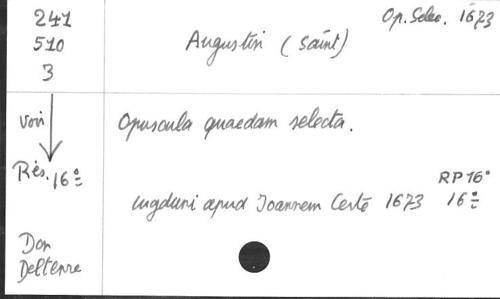 241
510
3
Op. Selec. 1673
Augustin (Saint)
voir
Opuscula quaedam selecta.
Rés. 16°
RP 16°
Lugduni apud Joannem Certe 1673 16°
Don
Delterre